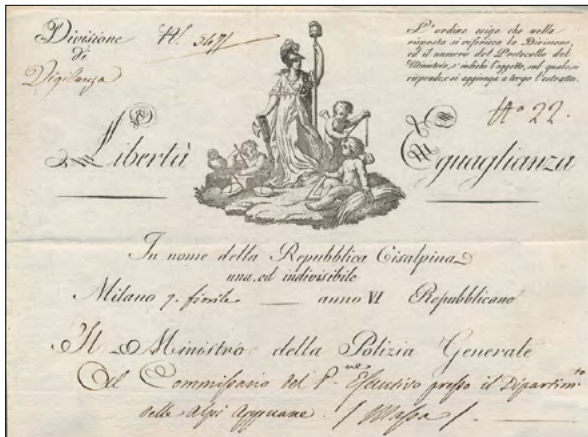 Divisione
di
Vigilanza
N.
L'ordine esige che nella
risposta si riferisca la Divisione,
ed il numero del Protocollo del
Ministro, s'indichi l'oggetto, sul quale si
risponde, e si aggiunga a tergo l'estratto.
N.o 22.
Libertà
Eguaglianza
In nome della Repubblica Cisalpina
una, ed indivisibile
Milano 7. fiorile anno VI Repubblicano
Il Ministro della Polizia Generale
Al Commissario del P.re Esecutivo presso il Dipartim.to
delle Alpi Appuane. / Massa /.